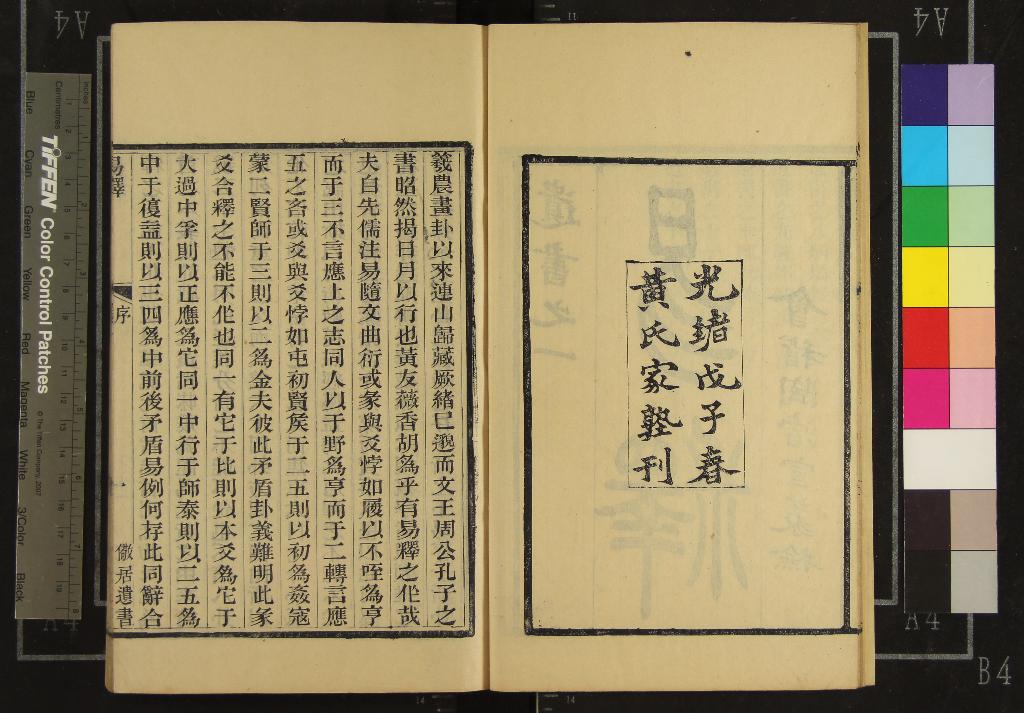 光緖戊子春
黃氏家塾刊
羲農畫卦以來連山歸藏厥緖已邈而文王周公孔子之
書昭然揭日月以行也黃友薇香胡為乎有易釋之作哉
夫自先儒注易隨文曲衍或彖與爻悖如履以不咥為亨
而于三不言應上之志同人以于野爲亨而于二轉言應
五之吝或爻與爻悖如屯初賢矦于二五則以初為姦寇
蒙二賢師于三則以二爲金夫彼此矛盾卦義難明此彖
爻合釋之不能不作也同一有它于比則以本爻爲它于
大過中孚則以正應爲它同一中行于師泰則以二五爲
中于復益則以三四爲中前後矛盾易例何存此同辭合
易釋
序
一
儆居遺書
TIFFEN Color Control Patches
© The Tiffen Company, 2007
Centimetres
Inches
Blue
Cyan
Green
Yellow
Red
Magenta
White
3/Color
Black
A4
A4
A4
A4
B4